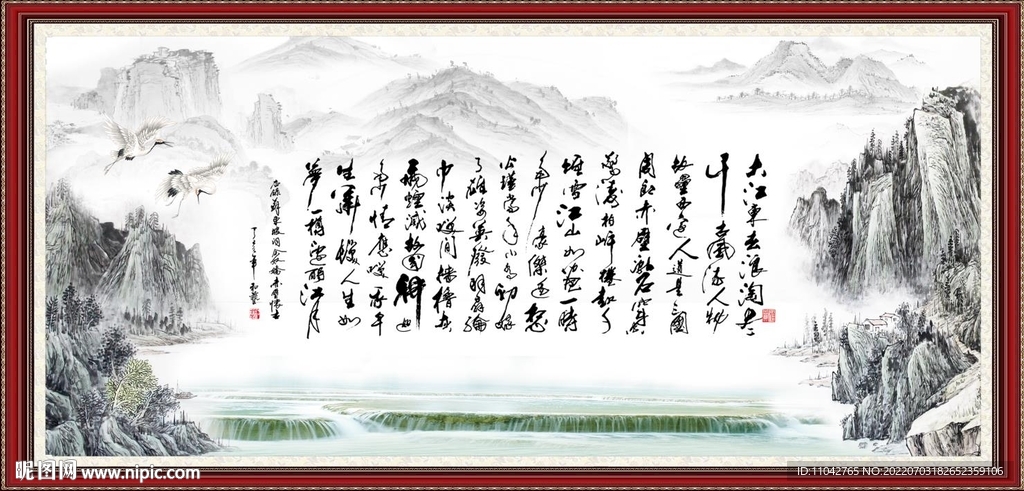 大江東去浪淘尽
千古風流人物
故壘西邊人道是三國
周郎赤壁亂石穿空
驚濤拍岸捲起千
堆雪江山如畫一時
多少豪傑遥想
公瑾當年小喬初嫁
了雄姿英發羽扇綸
巾談笑間檣櫓灰
飛煙滅故國神
多情應笑我早
生華髮人生如
夢一樽還酹江月
昵图网 www.nipic.com
ID:11042765 NO:20220703182652359106